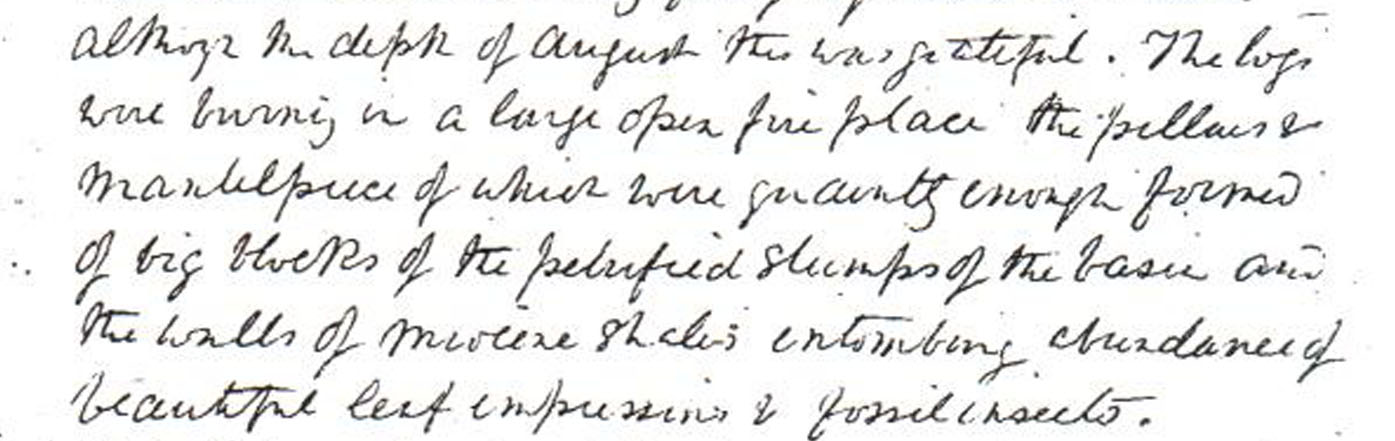 although the depth of August this was grateful. The logs
were burning in a large open fire place the pillars &
mantelpiece of which were quaintly enough formed
of big blocks of the petrified stumps of the basin and
the walls of miocene shales entombing abundance of
beautiful leaf impressions & fossil insects.